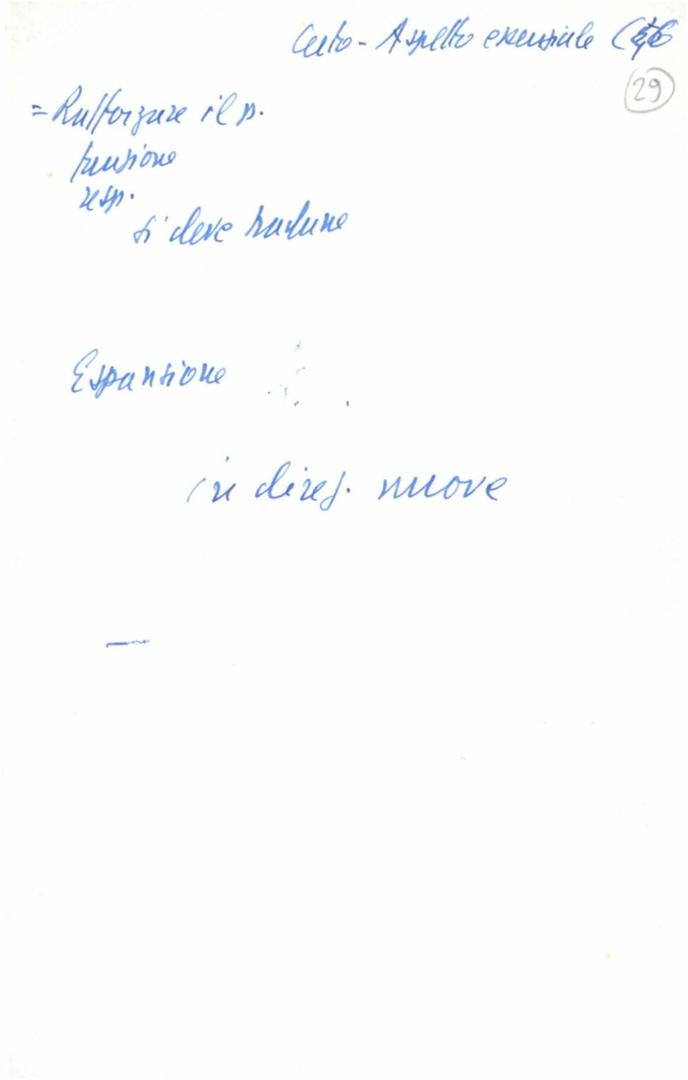 Aspetto essenziale
29
= Rafforzare il p.
funzione
resp.
si deve tradurre
Espansione
in direz. nuove